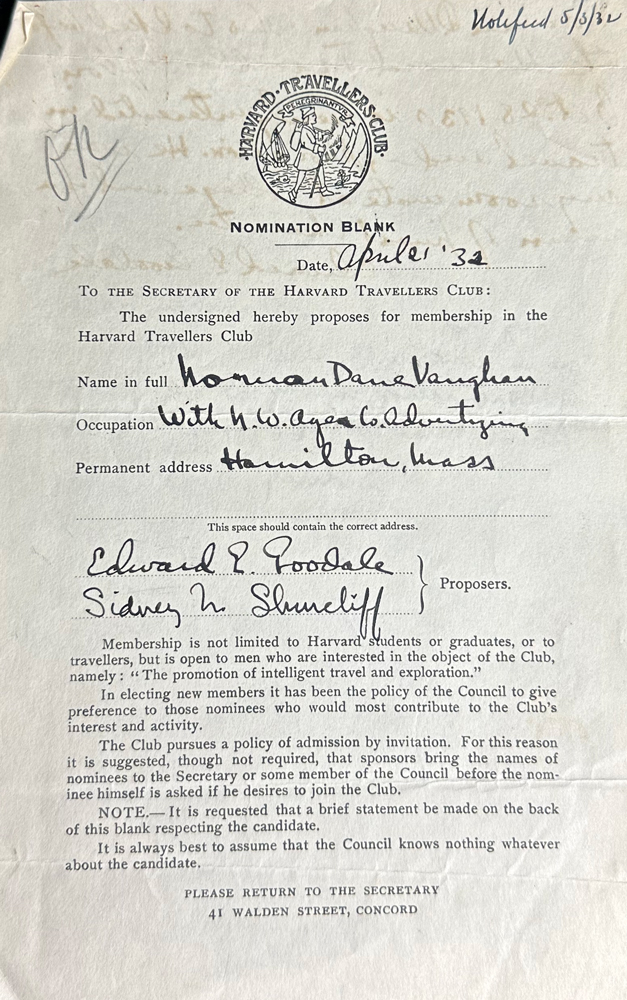 Notified 5/3/32
HARVARD·TRAVELLERS·CLUB·
PEREGRINANTVR
OK
NOMINATION BLANK
Date, April 21 '32
TO THE SECRETARY OF THE HARVARD TRAVELLERS CLUB:
The undersigned hereby proposes for membership in the
Harvard Travellers Club
Name in full Norman Dane Vaughan
Occupation With N.W. Ayer Co. Advertizing
Permanent address Hamilton, Mass
This space should contain the correct address.
Edward E. Goodale
Sidney N. Shurcliff
Proposers.
Membership is not limited to Harvard students or graduates, or to
travellers, but is open to men who are interested in the object of the Club,
namely: "The promotion of intelligent travel and exploration."
In electing new members it has been the policy of the Council to give
preference to those nominees who would most contribute to the Club's
interest and activity.
The Club pursues a policy of admission by invitation. For this reason
it is suggested, though not required, that sponsors bring the names of
nominees to the Secretary or some member of the Council before the nom-
inee himself is asked if he desires to join the Club.
NOTE.— It is requested that a brief statement be made on the back
of this blank respecting the candidate.
It is always best to assume that the Council knows nothing whatever
about the candidate.
PLEASE RETURN TO THE SECRETARY
41 WALDEN STREET, CONCORD